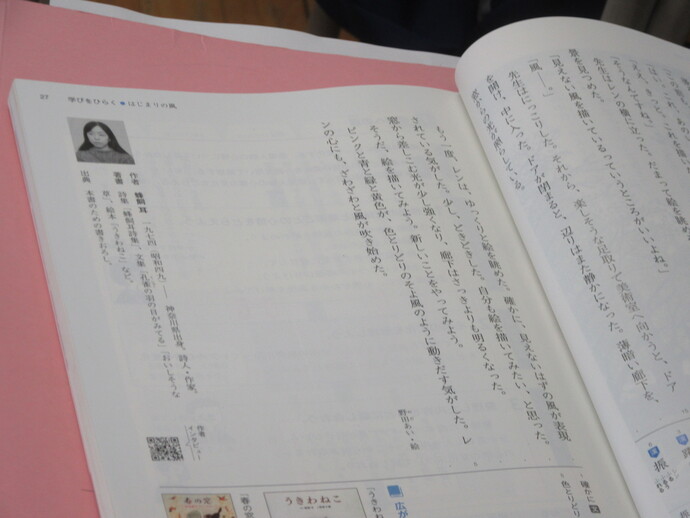 はい。これを描いた
「そうなんですね。」
先生はレンの横に立った。だまって絵を眺め
景を見つめた。
「見えない風を描いているっていうところがいいよね。」
「風――。」
先生はにっこりした。それから、楽しそうな足取りで美術室へ向かうと、ドア
を開け、中に入った。ドアが閉まると、辺りはまた静かになった。薄暗い廊下を、
窓からの光が照らしている。
もう一度、レンは、ゆっくりと絵を眺めた。確かに、見えないはずの風が表現
されている気がした。少し、どきどきした。自分も絵を描いてみたい、と思った。
窓から差しこむ光が少し強くなり、廊下はさっきよりも明るくなった。
そうだ、絵を描いてみよう。新しいことをやってみよう。
ピンクと青と緑と黄色が、色とりどりのそよ風のように動きだす気がした。レ
ンの心にも、ざわざわと風が吹き始めた。
野田あい・絵
27 学びをひらく●はじまりの風
作者 蜂飼 耳 一九七四(昭和四九)―― 神奈川県出身。詩人・作家。
著書 詩集「蜂飼耳詩集」、文集「孔雀の羽の目がみてる」「おいしそうな
草」、絵本「うきわねこ」など。
出典 本書のための書きおろし。
作者
インタビュー
5
確かに
色とりどり
広が
「うきわね
うきわねこ
「春の宮
振